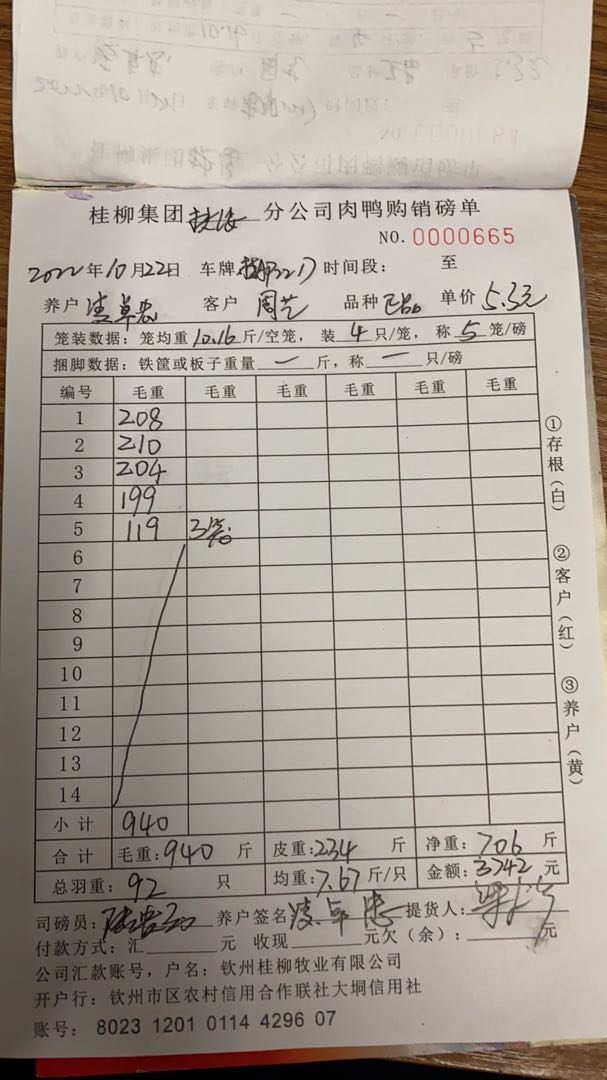 桂柳集团 分公司肉鸭购销磅单
NO. 0000665
2022年10月22日 车牌 时间段: 至
养户 客户 周艺 品种 正品 单价 5.3元
笼装数据: 笼均重10.16斤/空笼, 装4只/笼, 称5笼/磅
捆脚数据: 铁筐或板子重量一斤, 称一只/磅
编号 毛重 毛重 毛重 毛重 毛重 毛重
1 208
2 210
3 204
4 199
5 119 3笼
6
7
8
9
10
11
12
13
14
小计 940
合计 毛重:940斤 皮重:234斤 净重:706斤
总羽重: 92只 均重:7.67斤/只 金额:3742元
司磅员: 养户签名 提货人:
付款方式: 汇 元 收现 元欠(余): 元
公司汇款账号, 户名: 钦州桂柳牧业有限公司
开户行: 钦州市区农村信用合作联社大垌信用社
账号: 8023 1201 0114 4296 07
①存根(白)
②客户(红)
③养户(黄)